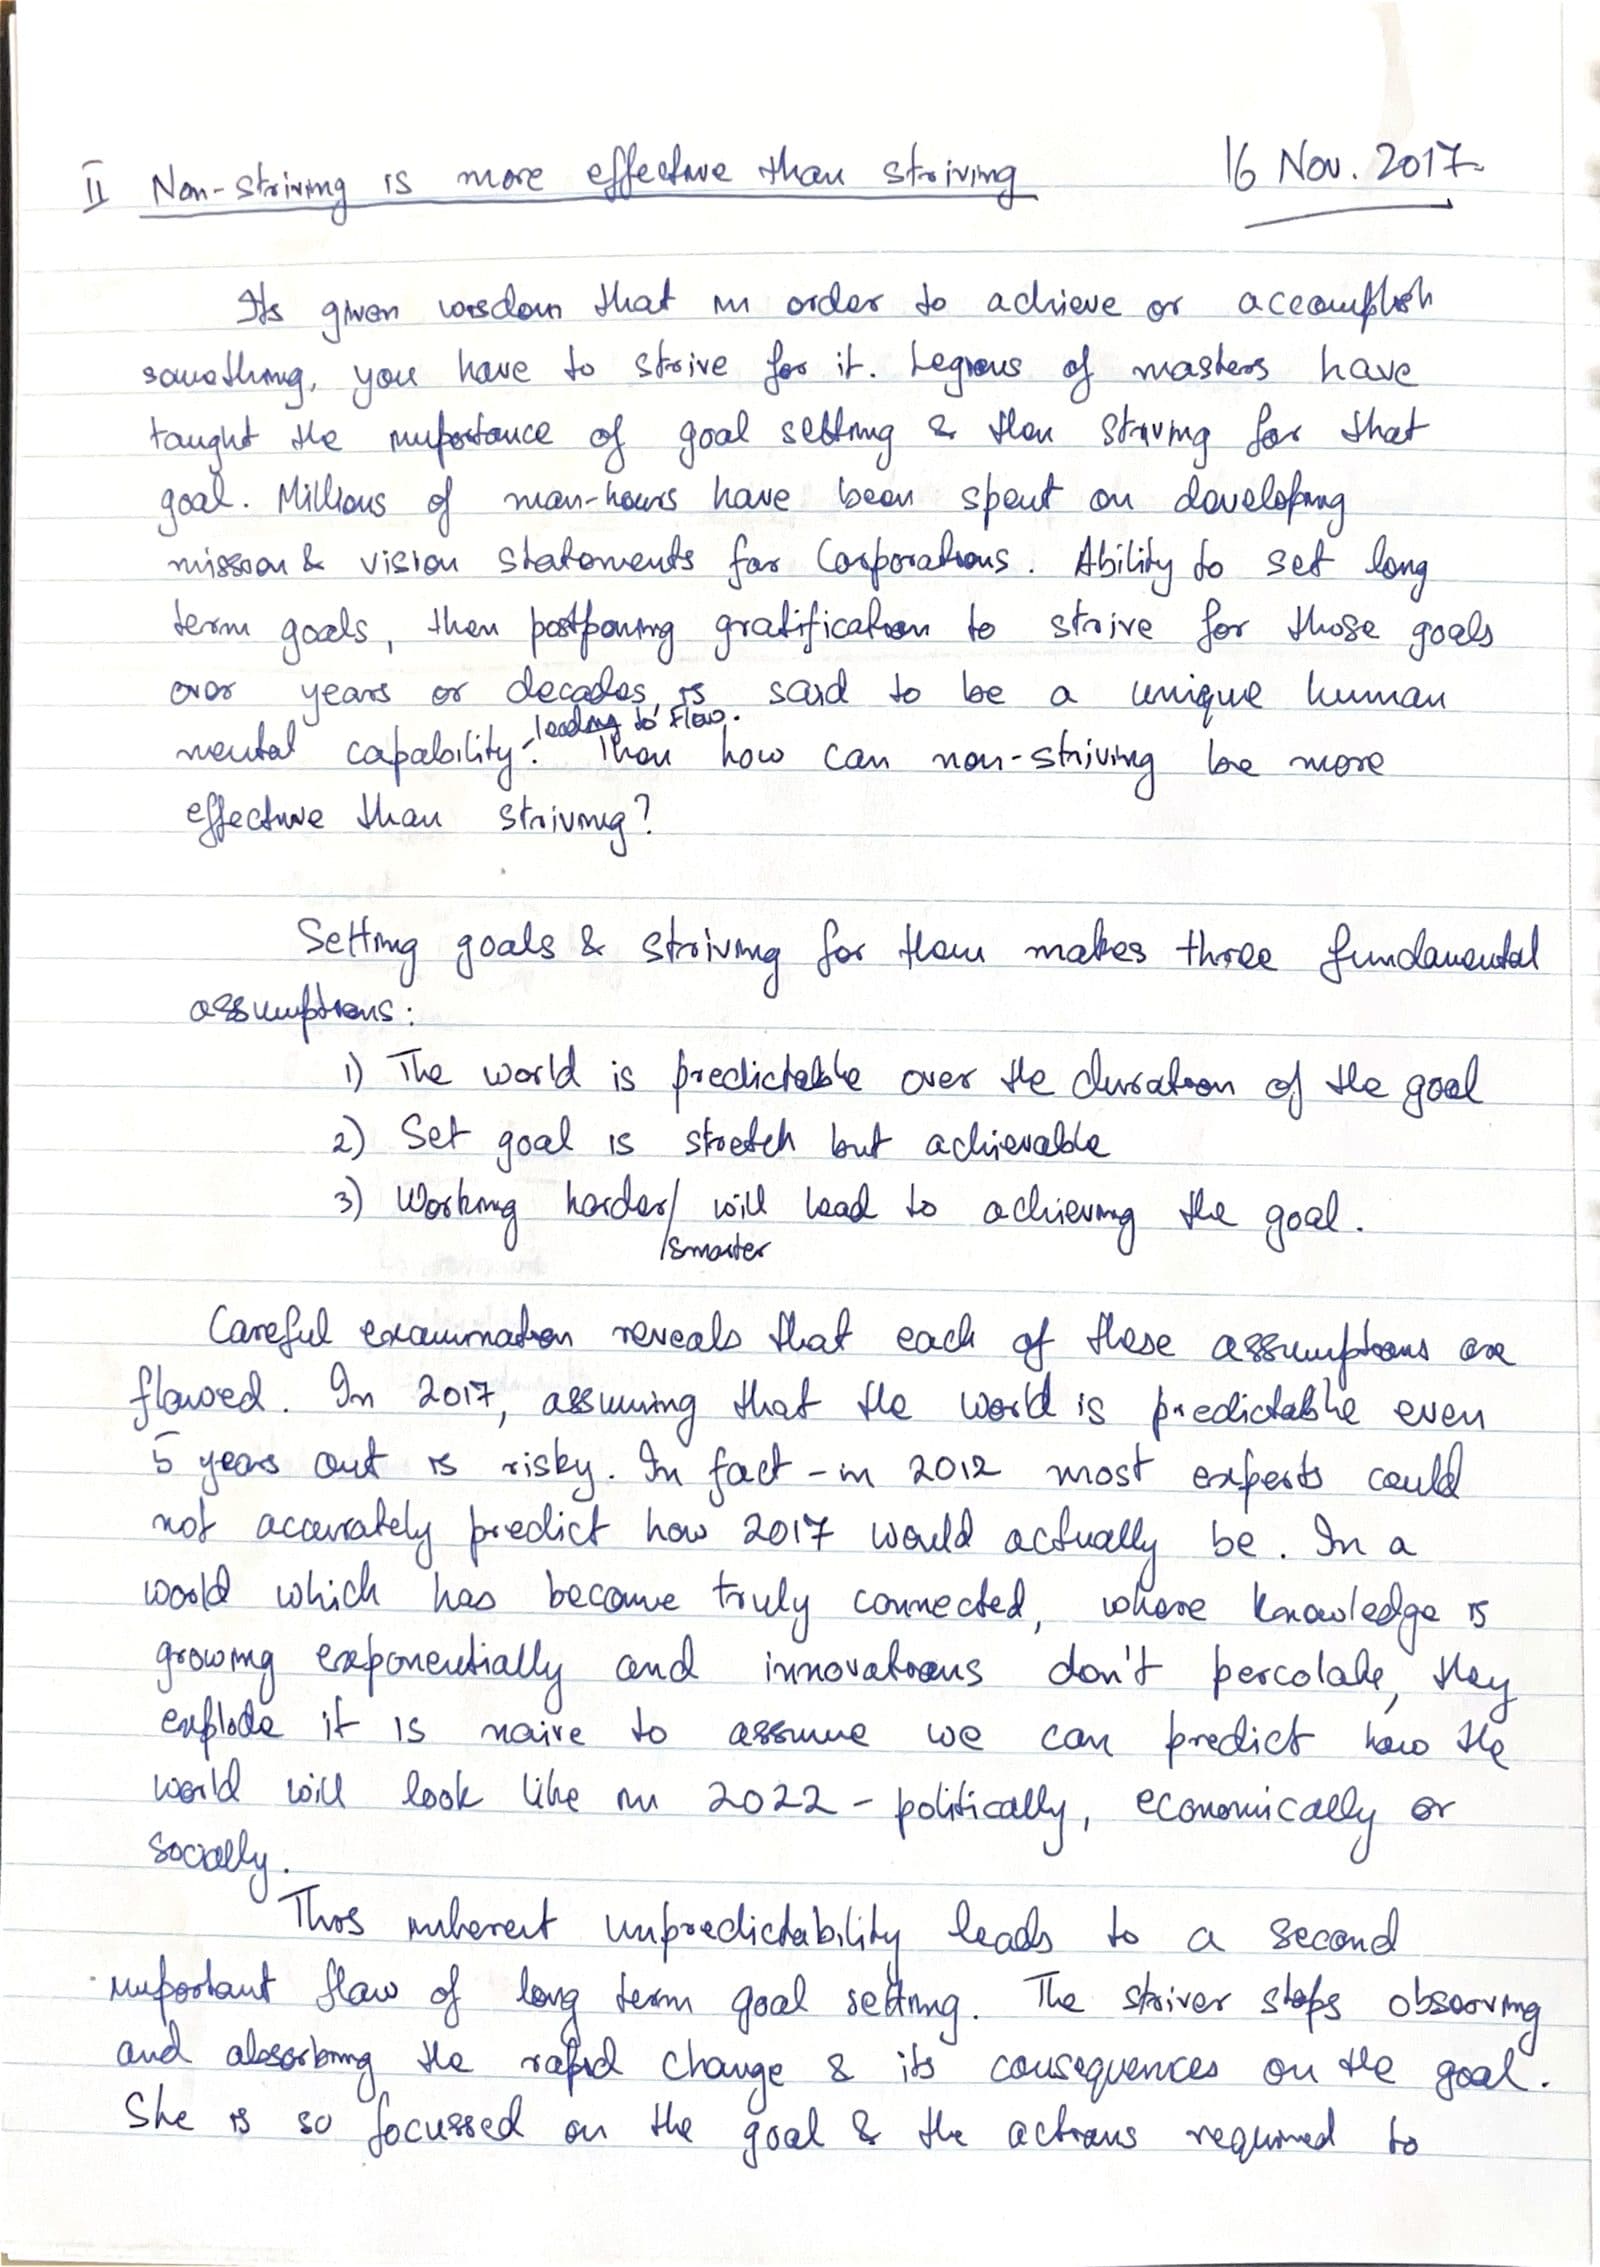 II Non-striving is more effective than striving 16 Nov. 2017
Its given wisdom that in order to achieve or accomplish
something, you have to strive for it. Legions of masters have
taught the importance of goal setting & then striving for that
goal. Millions of man-hours have been spent on developing
mission & vision statements for Corporations. Ability to set long
term goals, then postponing gratification to strive for those goals
over years or decades, is said to be a unique human
leading to flow.
mental capability. Then how can non-striving be more
effective than striving?
Setting goals & striving for them makes three fundamental
assumptions:
1) The world is predictable over the duration of the goal
2) Set goal is stretch but achievable
3) Working harder/ will lead to achieving the goal.
/smarter
Careful examination reveals that each of these assumptions are
flawed. In 2017, assuming that the world is predictable even
5 years out is risky. In fact - in 2012 most experts could
not accurately predict how 2017 would actually be. In a
world which has become truly connected, where knowledge is
growing exponentially and innovations don't percolate, they
explode it is naive to assume we can predict how the
world will look like in 2022 - politically, economically or
socially.
This inherent unpredictability leads to a second
important flaw of long term goal setting. The striver stops observing
and absorbing the rapid change & its consequences on the goal.
She is so focussed on the goal & the actions required to